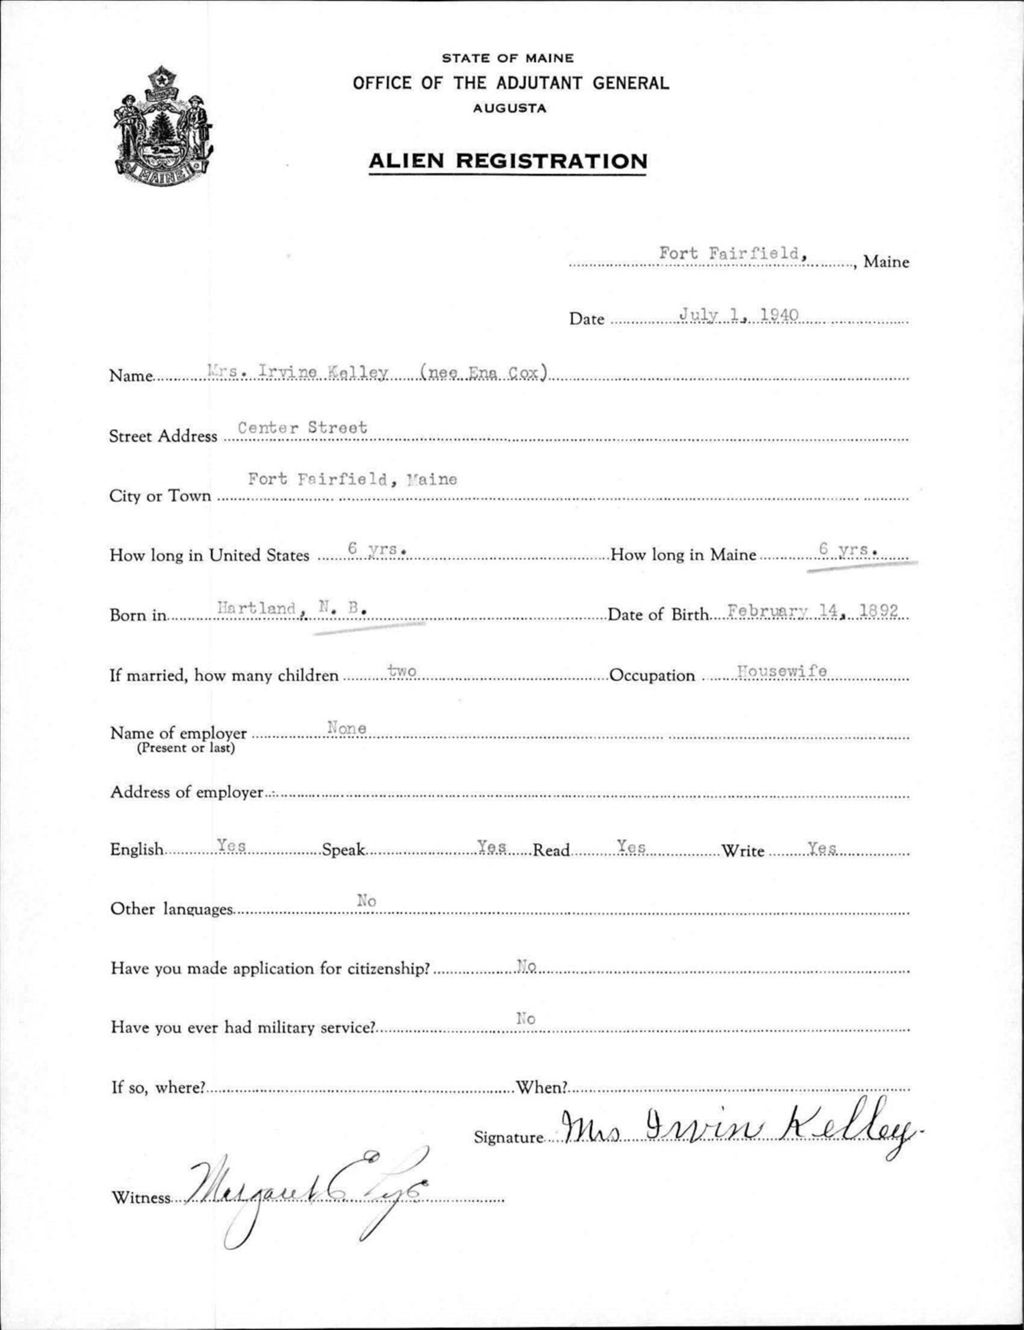 STATE OF MAINE
OFFICE OF THE ADJUTANT GENERAL
AUGUSTA
ALIEN REGISTRATION
MAINE
Fort Fairfield, , Maine
Date July 1, 1940
Name Mrs. Irvine Kelley (nee Ena Cox)
Street Address Center Street
City or Town Fort Fairfield, Maine
How long in United States 6 yrs. How long in Maine 6 yrs.
Born in Hartland, N. B. Date of Birth February 14, 1892
If married, how many children two Occupation Housewife
Name of employer None
(Present or last)
Address of employer
English Yes Speak Yes Read Yes Write Yes
Other languages No
Have you made application for citizenship? No
Have you ever had military service? No
If so, where? When?
Signature Mrs Irvin Kelley
Witness Margaret E